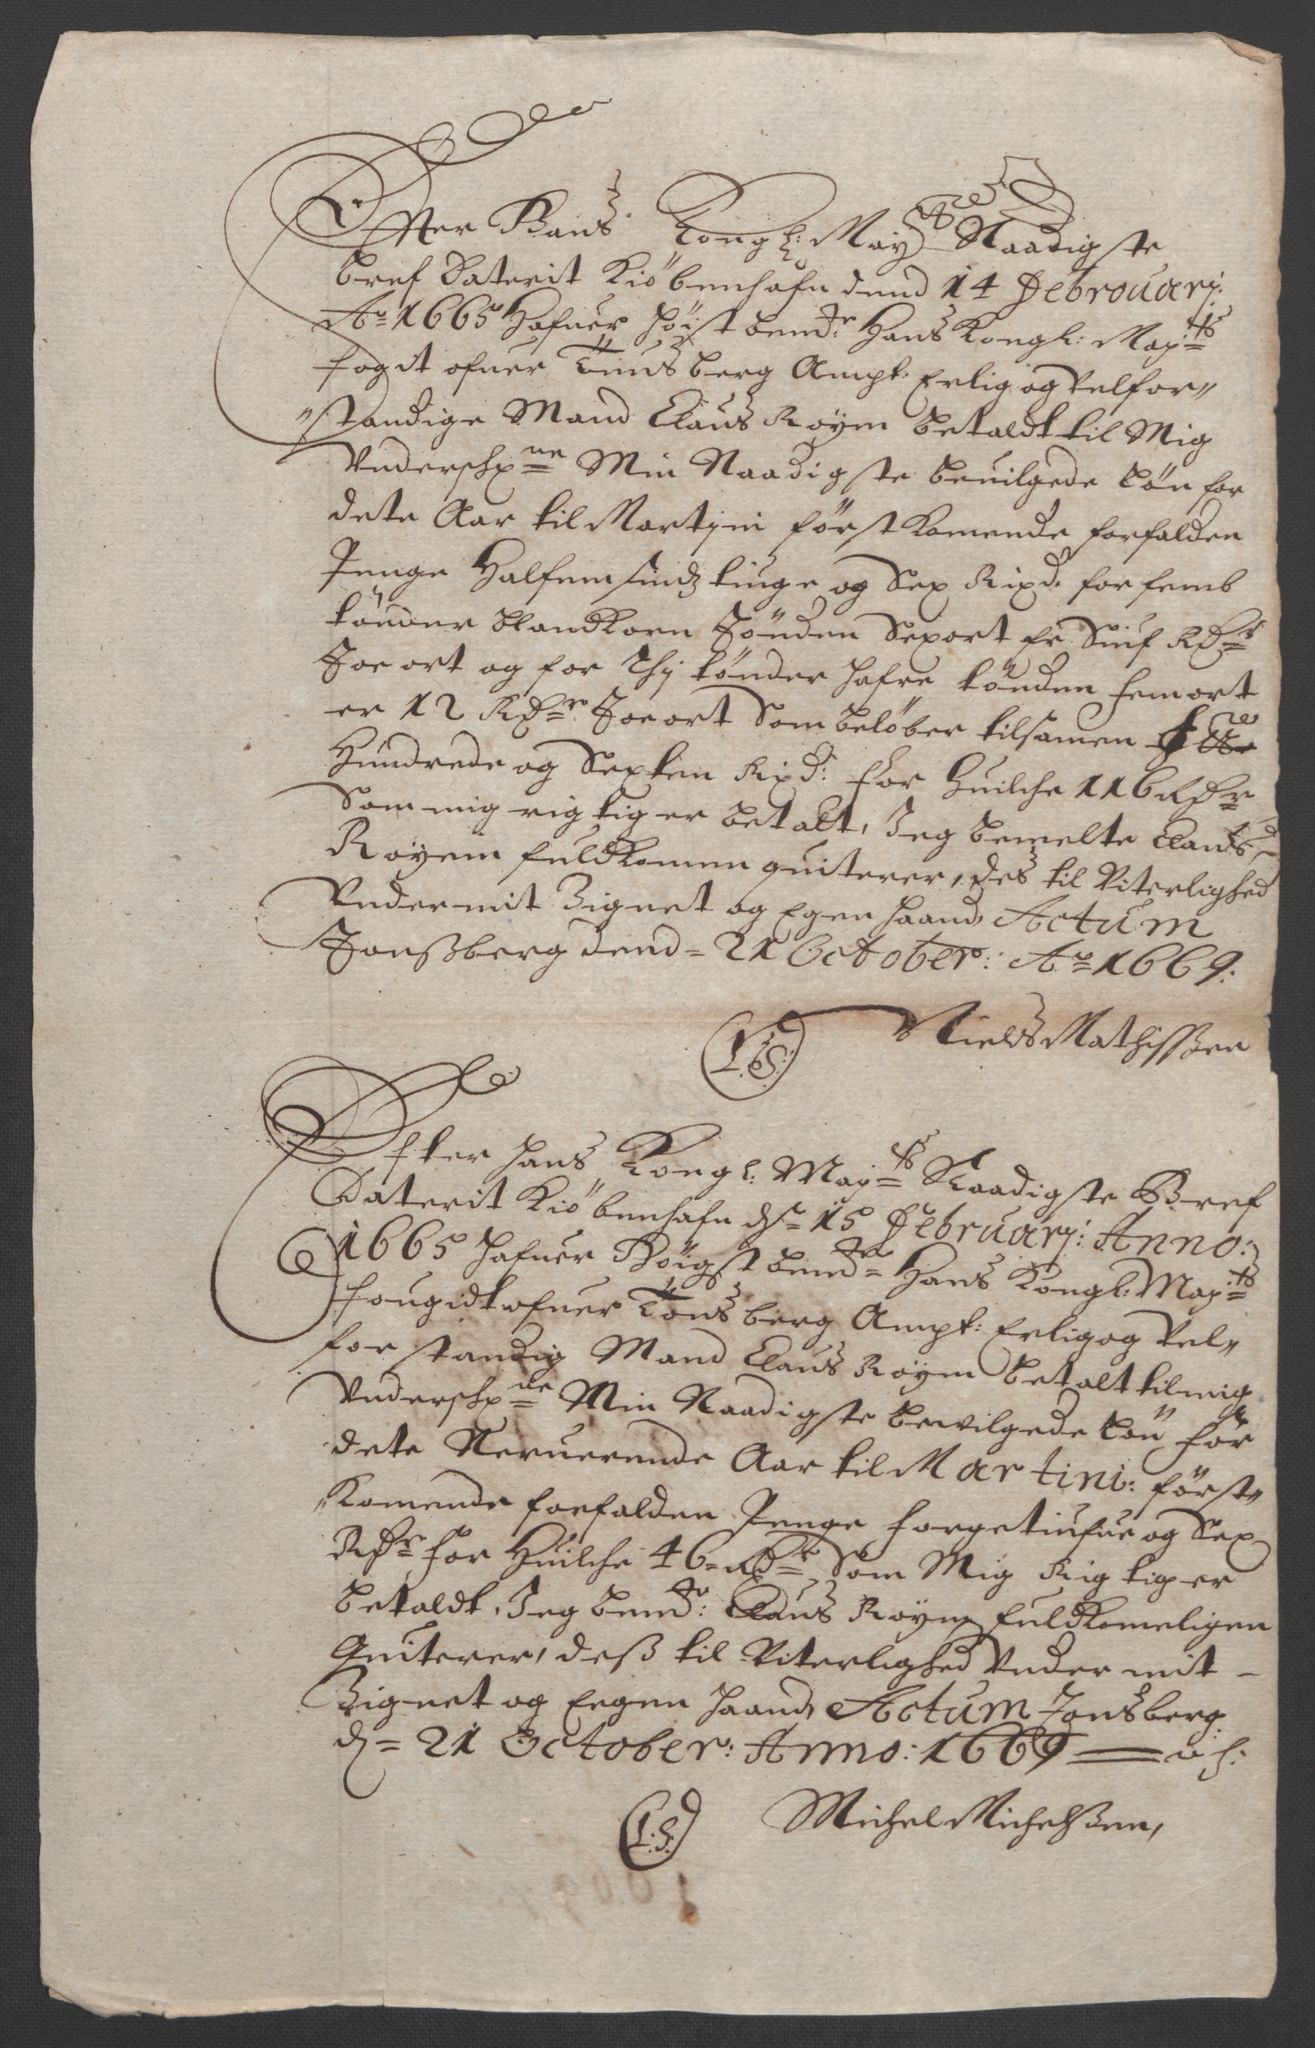 Efter Hans Kongl: May: tts Naadigste
bref Daterit Kiöbenhafn dend 14 Februarj:
Ao 1665 Hafuer höist bem:te Hans Kongl: May:tts
fogit ofuer Tünsberg Ampt Erlig og Velfor„
„standige Mand Claus Röyem betaldt til Mig
Vnderschr:ne Min Naadigste beuilgede Lön for
dete Aar til Martini först Komende forfalden
Penge Halfemsindztiuge og Sex Rixd: for femb
tönder blandkorn Tönden Sex ort er Siuf Rdr
Toe ort og for Thj tönder hafre tönden fem ort
er 12 Rdr Toe ort Som belöber tilsamen
Hundrede og Sexten Rixd: for Huilche 116 Rdr
Som mig rigtig er betalt, Jeg bemelte Claus
Röyem fuldkomen quiterer, des til Viterlighed
Vnder mit Zignet og Egen haand, Actum
Tonßberg dend = 21 October: Ao 1669:
L.S. Niels Mathisßen
Efter Hans Kongl: May:tts Naadigste Bref
Daterit Kiöbenhafn d: 15 Februarj: Anno:
1665 hafuer Höigst bem:te Hans Kongl: May:tts
fougidt ofuer Tönsberg Ampt: Erlig og Vel„
forstandig Mand Claus Röyem betalt til mig
Vnderschr:ne Min Naadigste bewilgede Lön for
dete Neruerende Aar til Martini: först„
„Komende forfalden Penge forgetiufue og Sex
Rdr for Huilche 46 = Rdr Som Mig Rigtig er
betaldt, Jeg bem:te Claus Röyem fuldkomeligen
Quiterer, deß til Viterlighed Vnder mit –
Zignet og Eegen haand, Actum Tonsberg
d = 21 October: Anno: 1669
L.S. Michel Michelßen,